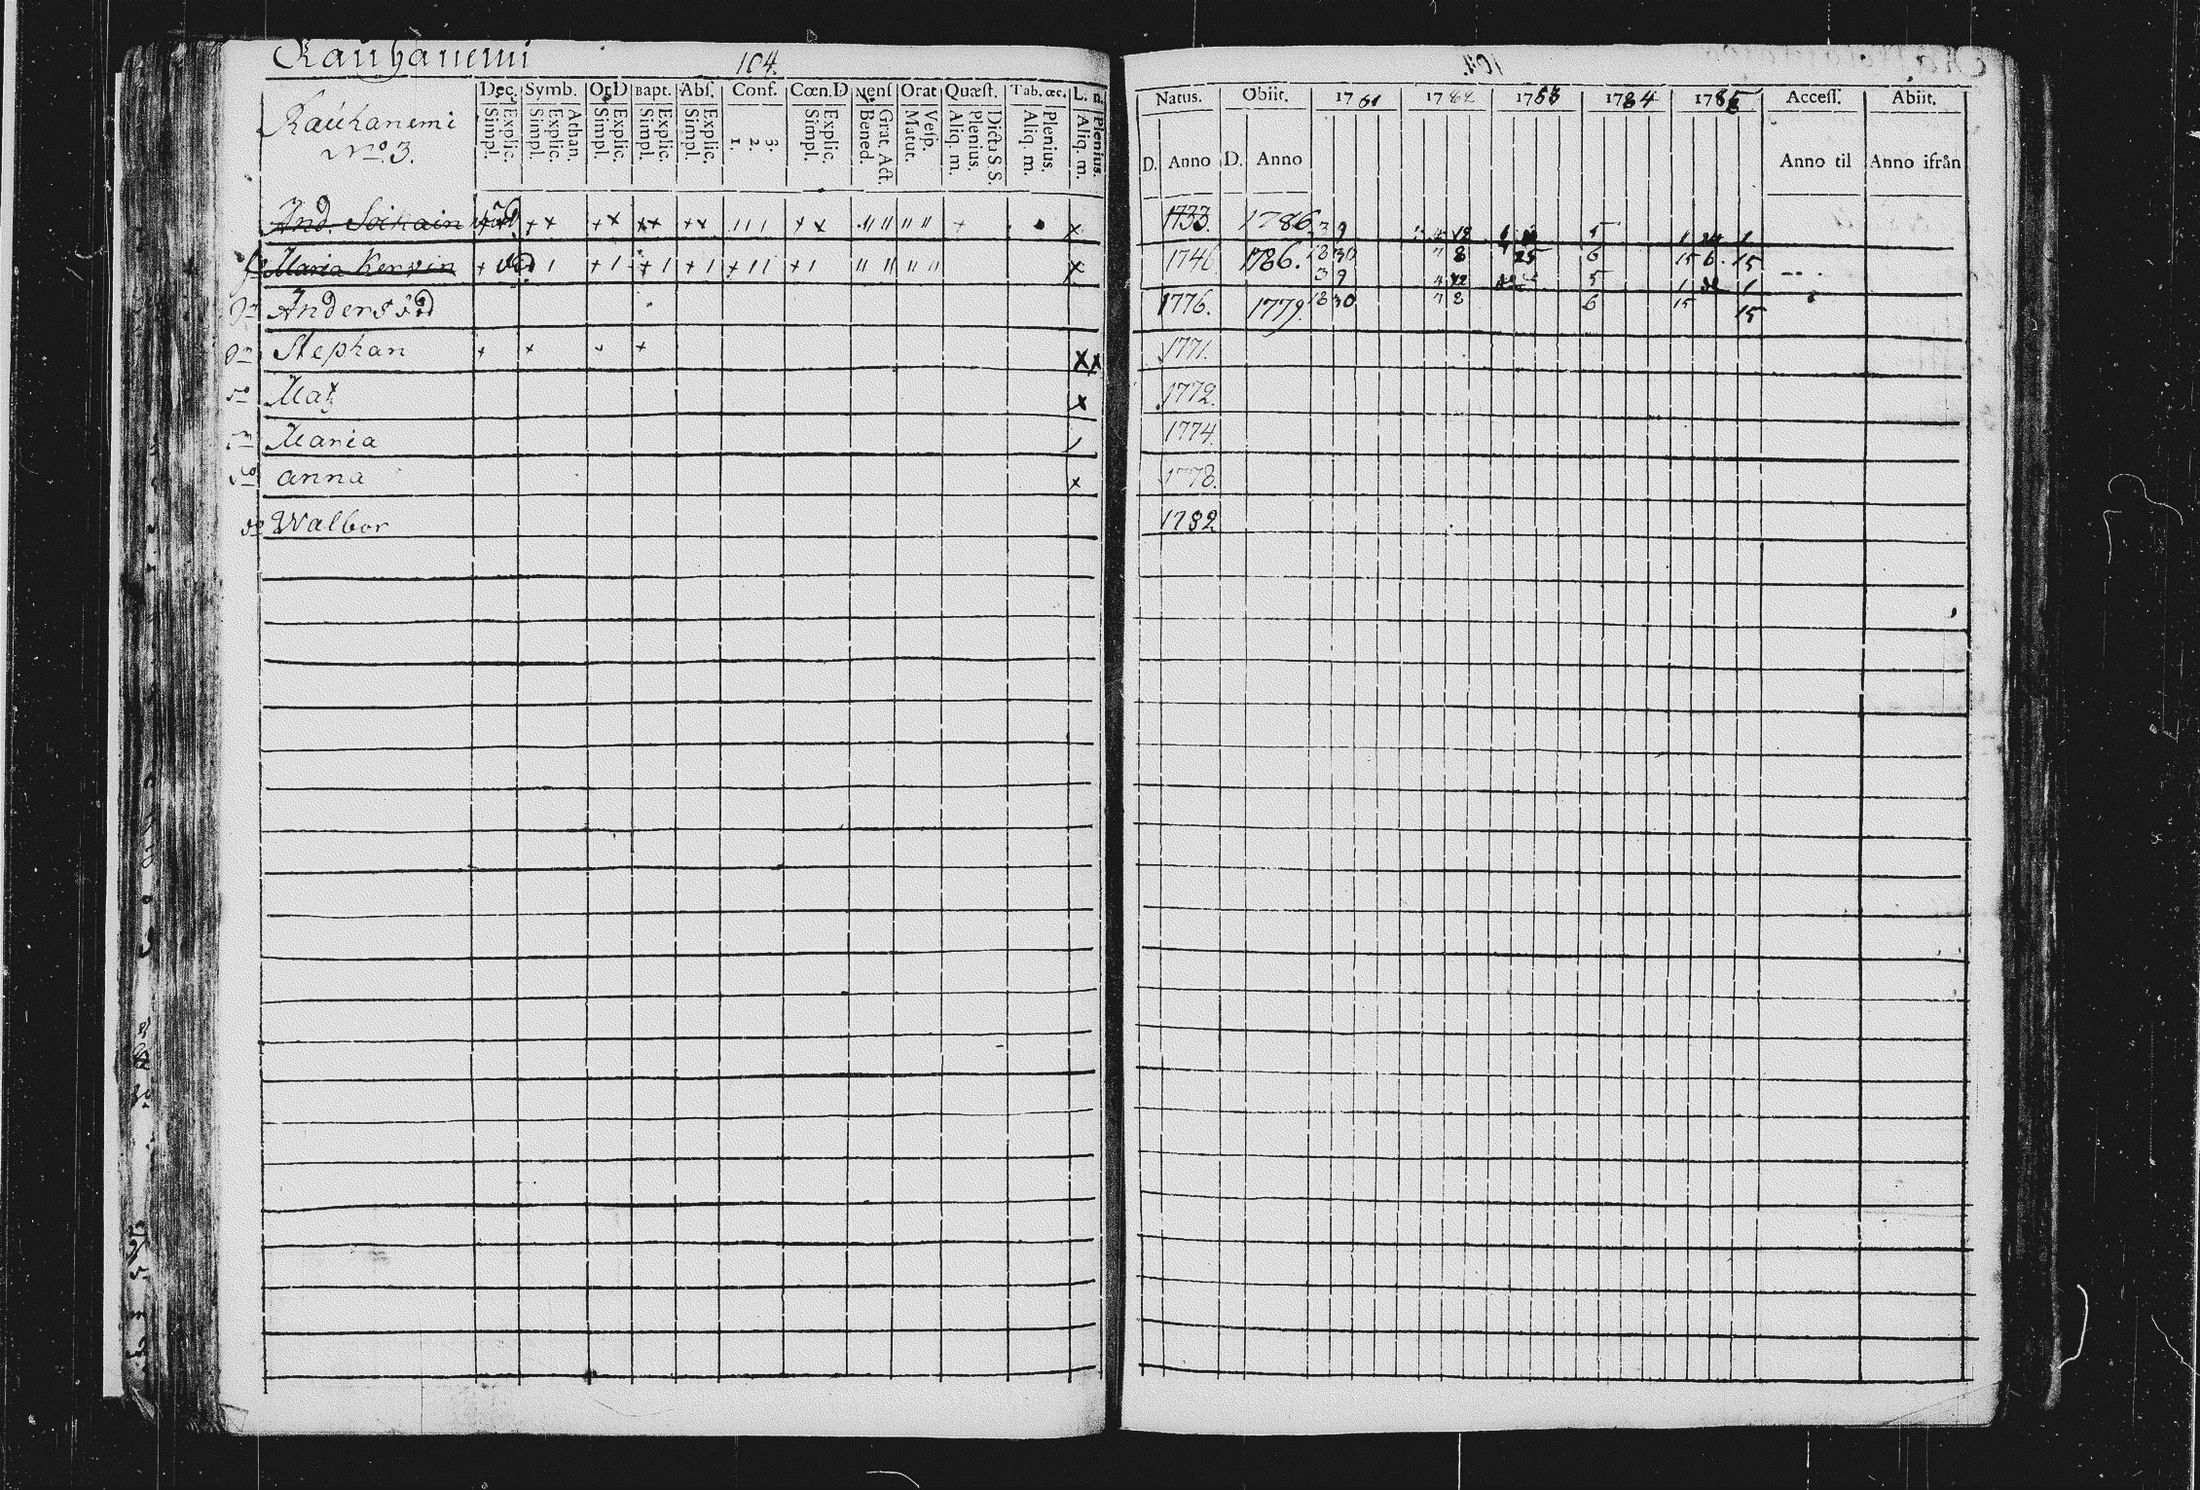 Rauhanemi 104.
Dec. Symb. Or D Bapt. Abſ. Conf. Cœn. D Menſ Orat Quæſt. Tab. œc. L. n.
Simpl. Explic. Simpl. Explic. Athan. Simpl. Explic. Simpl. Explic. Simpl. Explic. 1. 2. 3. Simpl. Explic. Bened. Grat. Act. Matut. Veſp. Aliq. m. Plenius. Dicta S S. Aliq. m. Plenius. Aliq. m. Plenius.
Rauhanemi
No. 3.
And. Soikain död + + + x + + + + 1 1 1 + x 11 11 11 11 + x
Maria Kervin + död 1 + 1 + 1 + 1 + 1 1 + 1 11 11 11 11 x
Anders död
Stephan + + + + x x
Matz x
Maria 1
anna x
Walbor
104.
Natus. Obiit. 1781 1782 1783 1784 1785 Acceſſ. Abiit.
D. Anno D. Anno Anno til Anno ifrån
1733. 1786. 3 9 4 12 5 1 1
1746 1786. 18 30 7 8 25 6 15 6 15
3 9 4 12 5 1 1
1776. 1779. 18 30 7 8 6 15 15
1771.
1772.
1774.
1778.
1782